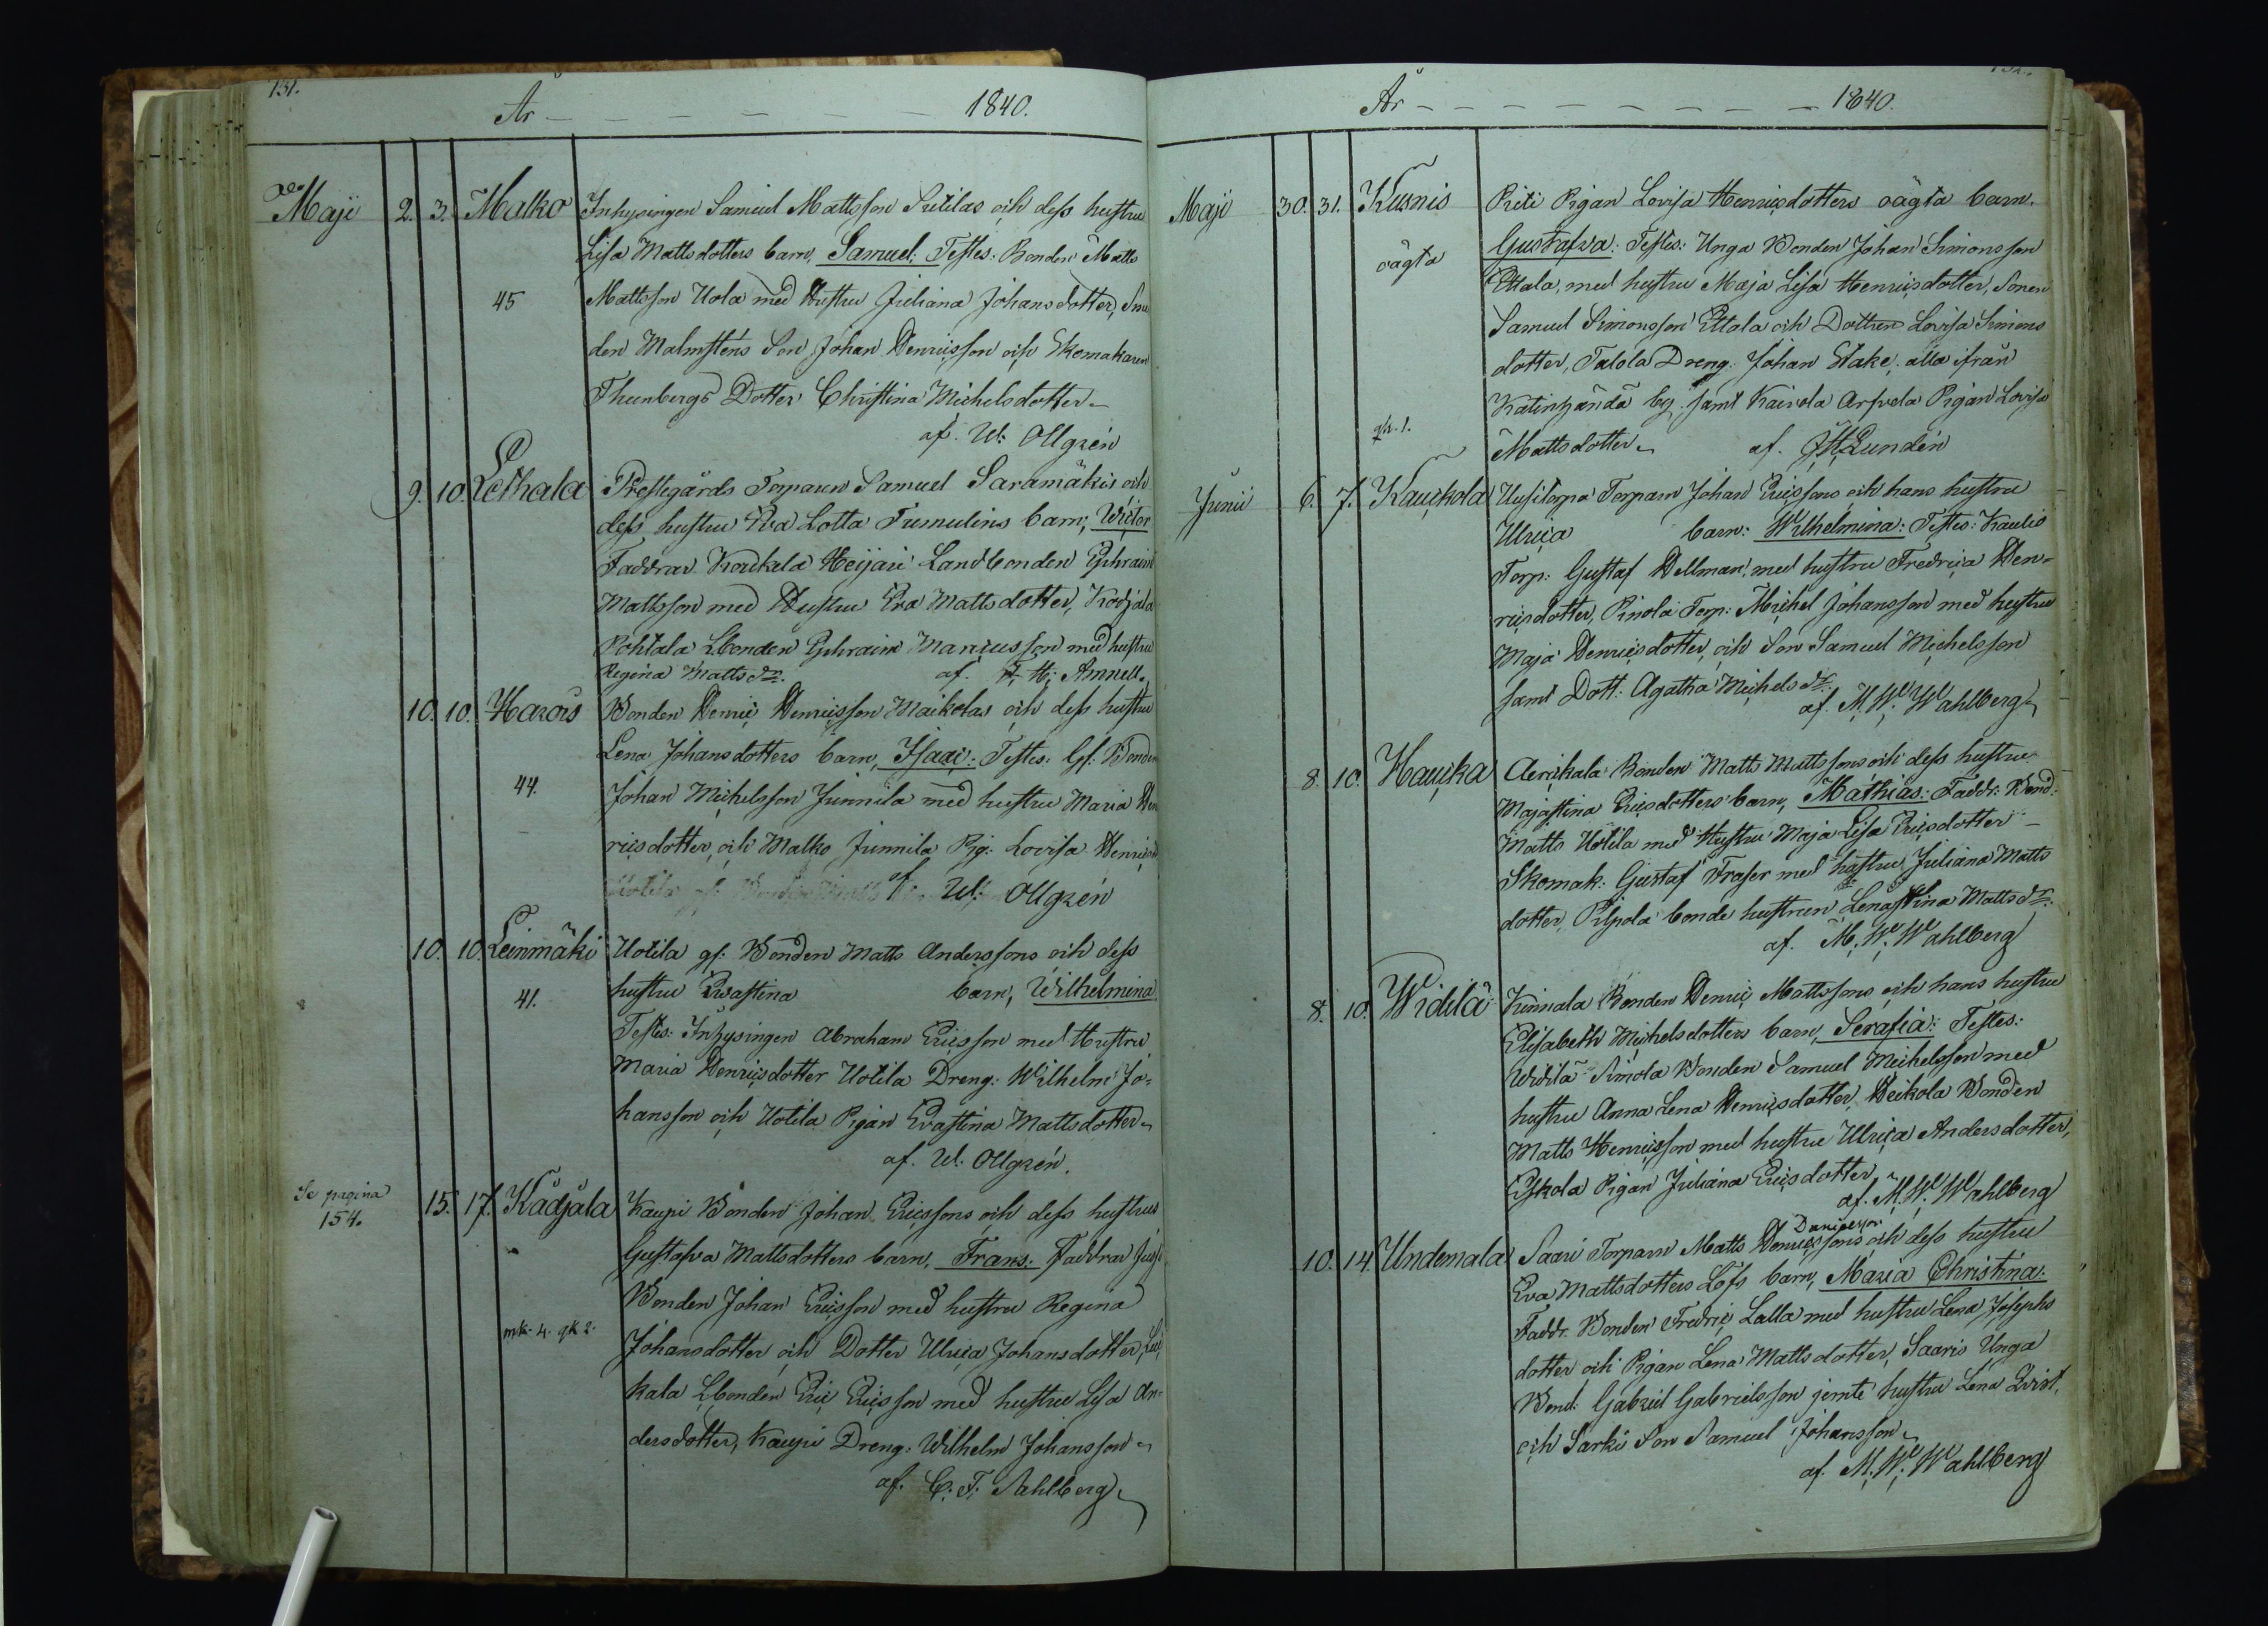 131.
År 1840.
Maji 2. 3. Malko Inhysingen Samuel Mattsson Sutilas och dess hustru
Lisa Mattsdotters barn, Samuel: Testes: Bonden Matts
45 Mattsson Uola med Hustru Juliana Johansdotter, Sme
den Malmsténs Son Johan Henricsson och Skomakaren
Thunbergs Dotter Christina Michelsdotter
af. W: Ollgrén
9. 10. Lethala Prestegårds Torparen Samuel Saramäkis och
dess hustru Eva Lotta Tumulins barn, Wictor
Faddrar Koukala Heijari Landbonden Ephraim
Mattsson med Hustru Eva Mattsdotter, Kodjala
Pohtala Lbonden Ephraim Marcusson med hustru
Regina Matts dr. af. F. H: Amnell.
10. 10. Harois Bonden Henric Henricsson Maikolas och dess hustru
Lena Johansdotters barn, Isaac: Testes: Gf: Bonden
44. Johan Michelsson Junnila med hustru Maria Hen
ricsdotter, och Malko Junnila Pig: Lovisa Henricsd
af W: Ollgrén
10. 10. Leinmäki Uotila gf: Bonden Matts Anderssons och dess
41. hustru Evastina barn, Wilhelmina.
Testes: Inhysingen Abraham Ericsson med Hustru
Maria Henricsdotter Uotila Dreng: Wilhelm Jo-
hansson och Uotila Pigan Evastina Mattsdotter
af. W: Ollgrén.
Se pagina
154.
15. 17. Kådjala Kaupi Bonden Johan Ericssons och dess hustrus
Gustafva Mattsdotters barn, Frans: Faddrar Jussi
Bonden Johan Ericsson med hustru Regina
mk. 4. gk 2. Johansdotter och Dotter Ulrica Johansdotter,
kala Lbonden Eric Ericsson med hustru Lisa An-
dersdotter, Kaupi Dreng: Wilhelm Johansson
af. C. F. Sahlberg
År 1840.
Maji 30. 31. Kusnis Piti Pigan Lovisa Henricsdotters oägta barn.
oägta Gustafva: Testes: Unga Bonden Johan Simonsson
Ettala, med hustru Maja Lisa Henricsdotter, Sonen
Samuel Simonsson Ettala och Dottren Lovisa Simons
dotter, Talola Dreng: Johan Stake, alla ifrån
Katinhändä by, samt Kaivola Arfvela Pigan Lovisa
gk. 1. Mattsdotter af. Lundén
Junii 6. 7. Kauckola Uusitorpa Torparn Johan Ericssons och hans hustru
Ulrica barn: Wilhelmina: Testes: Kaulis
Torp: Gustaf Hellman, med hustru Fredrica Hen-
ricsdotter, Pinola Torp: Michel Johansson med hustru
Maja Henricsdotter, och Son Samuel Michelsson
samt Dott: Agatha Michels dr.
af. M. W: Wahlberg
8. 10. Haucka Bonden Matts Mattssons och dess hustru
Majastina Ericsdotters barn, Mathias: Faddr: Bond:
Matts Uotila med Hustru Maja Lisa Ericsdotter
Skomak: Gustaf Fraser med hustru Juliana Matts
dotter, Pilpola bonde hustrun Lenastina Matts dr:
af. M. W: Wahlberg
8. 10. Widilä Kinnala Bonden Henric Mattssons och hans hustru
Elisabeth Michelsdotters barn, Serafia: Testes:
Widilä Simola Bonden Samuel Michelsson med
hustru Anna Lena Henricsdotter, Heikola Bonden
Matts Henricsson med hustru Ulrica Andersdotter,
Eskola Pigan Juliana Ericsdotter
af. M. W: Wahlberg
Danielsson
10. 14. Undemala Saari Torparn Matts Henricssons och dess hustru
Eva Mattsdotters Löfs barn, Maria Christina:
Faddr: Bonden Fredric Lalla med hustru Lena Josephs
dotter och Pigan Lena Mattsdotter, Saaris Unga
Bond: Gabriel Gabrielsson jemte hustru Lena Qvist,
och Sarki Son Samuel Johansson
af. M. W: Wahlberg